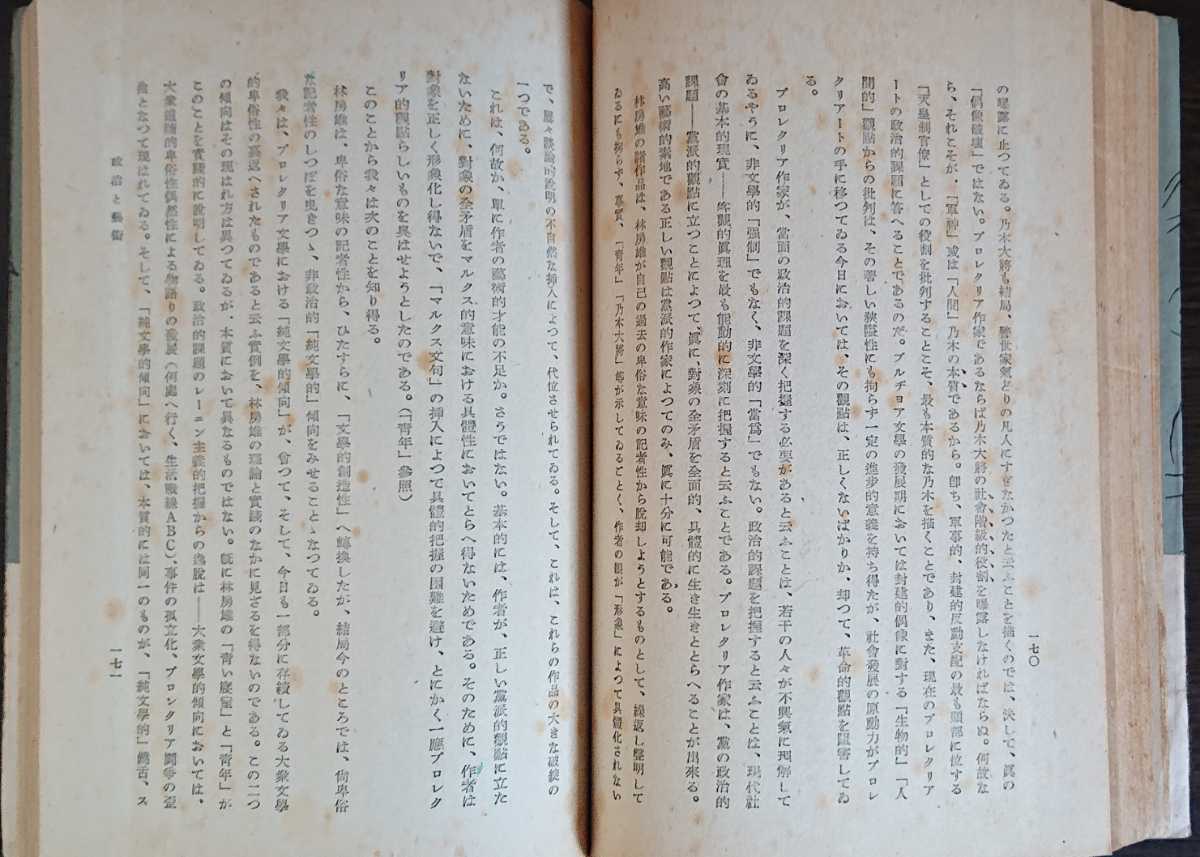 一七〇
の曝露に止つてゐる。乃木大將も結局、警世家氣どりの凡人にすぎなかつたと云ふことを描くのでは、決して、眞の
「偶像破壞」ではない。プロレタリア作家であるならば乃木大將の社會階級的役割を曝露しなければならぬ。何故な
ら、それこそが、「軍神」或は「人間」乃木の本質であるから。卽ち、軍事的、封建的反動支配の最も頭部に位する
「天皇制官僚」としての役割を批判することこそ、最も本質的な乃木を描くことであり、また、現在のプロレタリア
ートの政治的課題に答へることであるのだ。ブルヂョア文學の發展期においては封建的偶像に對する「生物的」「人
間的」觀點からの批判は、その著しい狹隘性にも拘らず一定の進步的意義を持ち得たが、社會發展の原動力がプロレ
タリアートの手に移つてゐる今日においては、その觀點は、正しくないばかりか、却つて、革命的觀點を阻害してゐ
る。
プロレタリア作家が、當面の政治的課題を深く把握する必要があると云ふことは、若干の人々が不興氣に理解して
ゐるやうに、非文學的「强制」でもなく、非文學的「當爲」でもない。政治的課題を把握すると云ふことは、現代社
會の基本的現實——客觀的眞理を最も能動的に深刻に把握すると云ふことである。プロレタリア作家は、黨の政治的
課題——黨派的觀點に立つことによつて、眞に、對象の全矛盾を全面的、具體的に生き生きととらへることが出來る。
高い藝術的素地である正しい觀點は黨派的作家によつてのみ、眞に十分に可能である。
林房雄の諸作品は、林房雄が自己の過去の卑俗な意味の記者性から脫却しようとするものとして、繰返し聲明して
ゐるにも拘らず、事實、「靑年」「乃木大將」等が示してゐるごとく、作者の眼が「形象」によつて具體化されない
で、屢々談論的說明の不自然な挿入によつて、代位させられてゐる。そして、これは、これらの作品の大きな破綻の
一つである。
これは、何故か、單に作者の藝術的才能の不足か。さうではない。基本的には、作者が、正しい黨派的觀點に立た
ないために、對象の全矛盾をマルクス的意味における具體性においてとらへ得ないためである。そのために、作者は
對象を正しく形象化し得ないで、「マルクス文句」の挿入によつて具體的把握の困難を避け、とにかく一應プロレタ
リア的觀點らしいものを與はせようとしたのである。（「靑年」參照）
このことから我々は次のことを知り得る。
林房雄は、卑俗な意味の記者性から、ひたすらに、「文學的創造性」へ轉換したが、結局今のところでは、尙卑俗
な記者性のしつぽを曳きつゝ、非政治的「純文學的」傾向をみせることゝなつてゐる。
我々は、プロレタリア文學における「純文學的傾向」が、曾つて、そして、今日も一部分に存續してゐる大衆文學
的卑俗性の裏返へされたものであると云ふ實例を、林房雄の理論と實踐のなかに見ざるを得ないのである。この二つ
の傾向はその現はれ方は異つてゐるが、本質において異なるものではない。旣に林房雄の「靑い寢室」と「靑年」が
このことを實踐的に說明してゐる。政治的課題のレーニン主義的把握からの逸脫は——大衆文學的傾向においては、
大衆追隨的卑俗性偶然性による物語りの發展（何處へ行く、生活戰線ＡＢＣ）、事件の孤立化、プロレタリア鬪爭の歪
曲となつて現はれてゐる。そして、「純文學的傾向」においては、本質的には同一のものが、「純文學的」饒舌、ス
政治と藝術
一七一